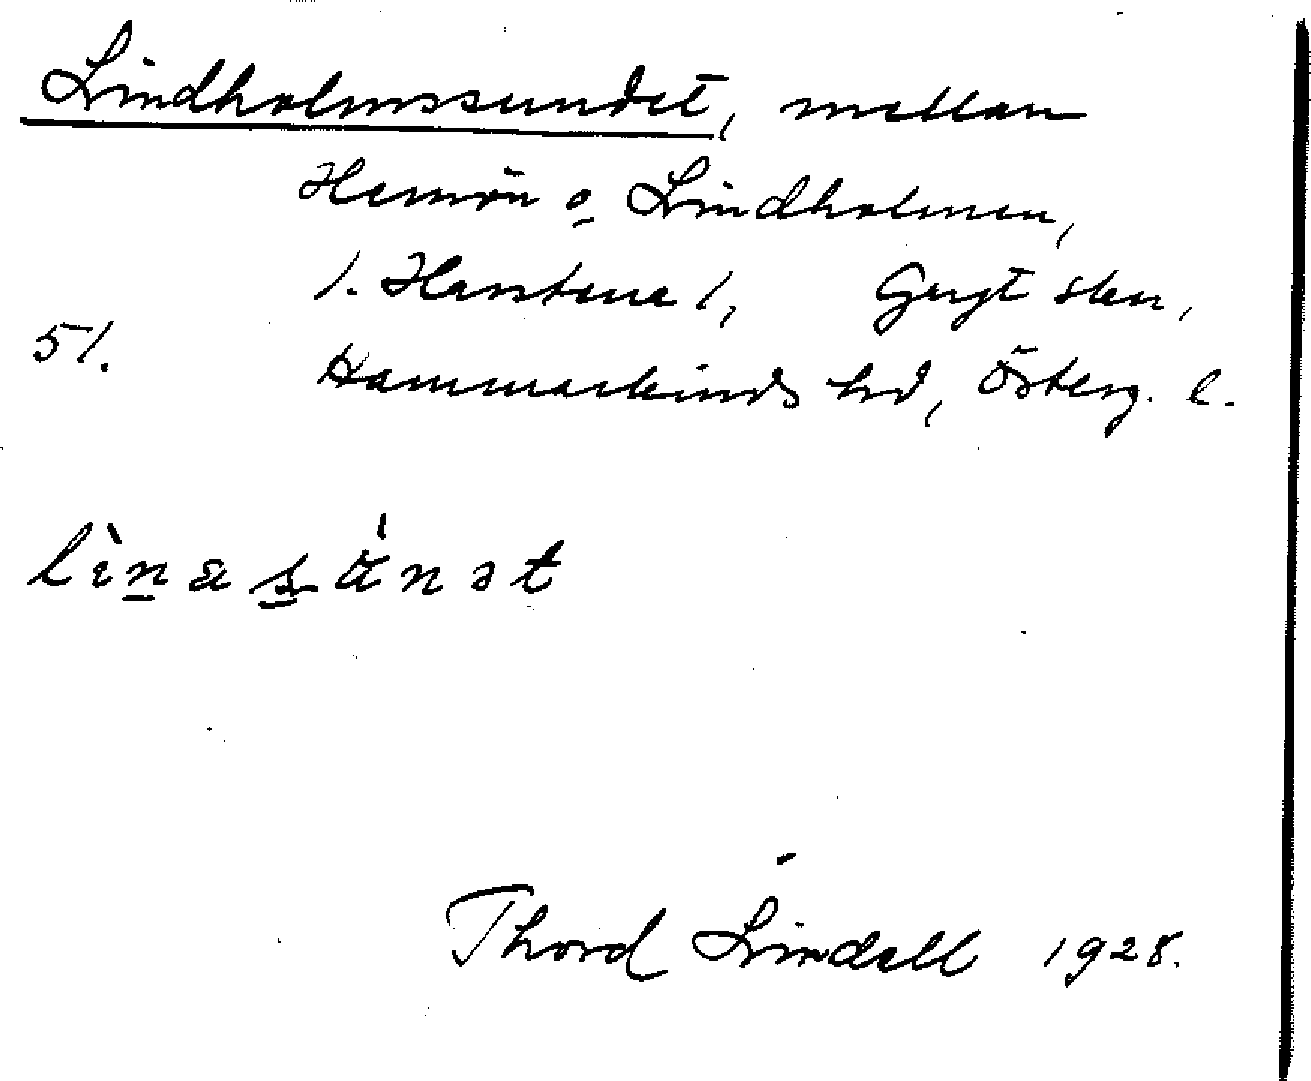 Lindholmssundet, mellan
Hemön o Lindholmen,
/. Harstena /, Gryt skn,
51. Hammarkinds hd, Österg. l.
lìnasúnət
Thord Lindell 1928.